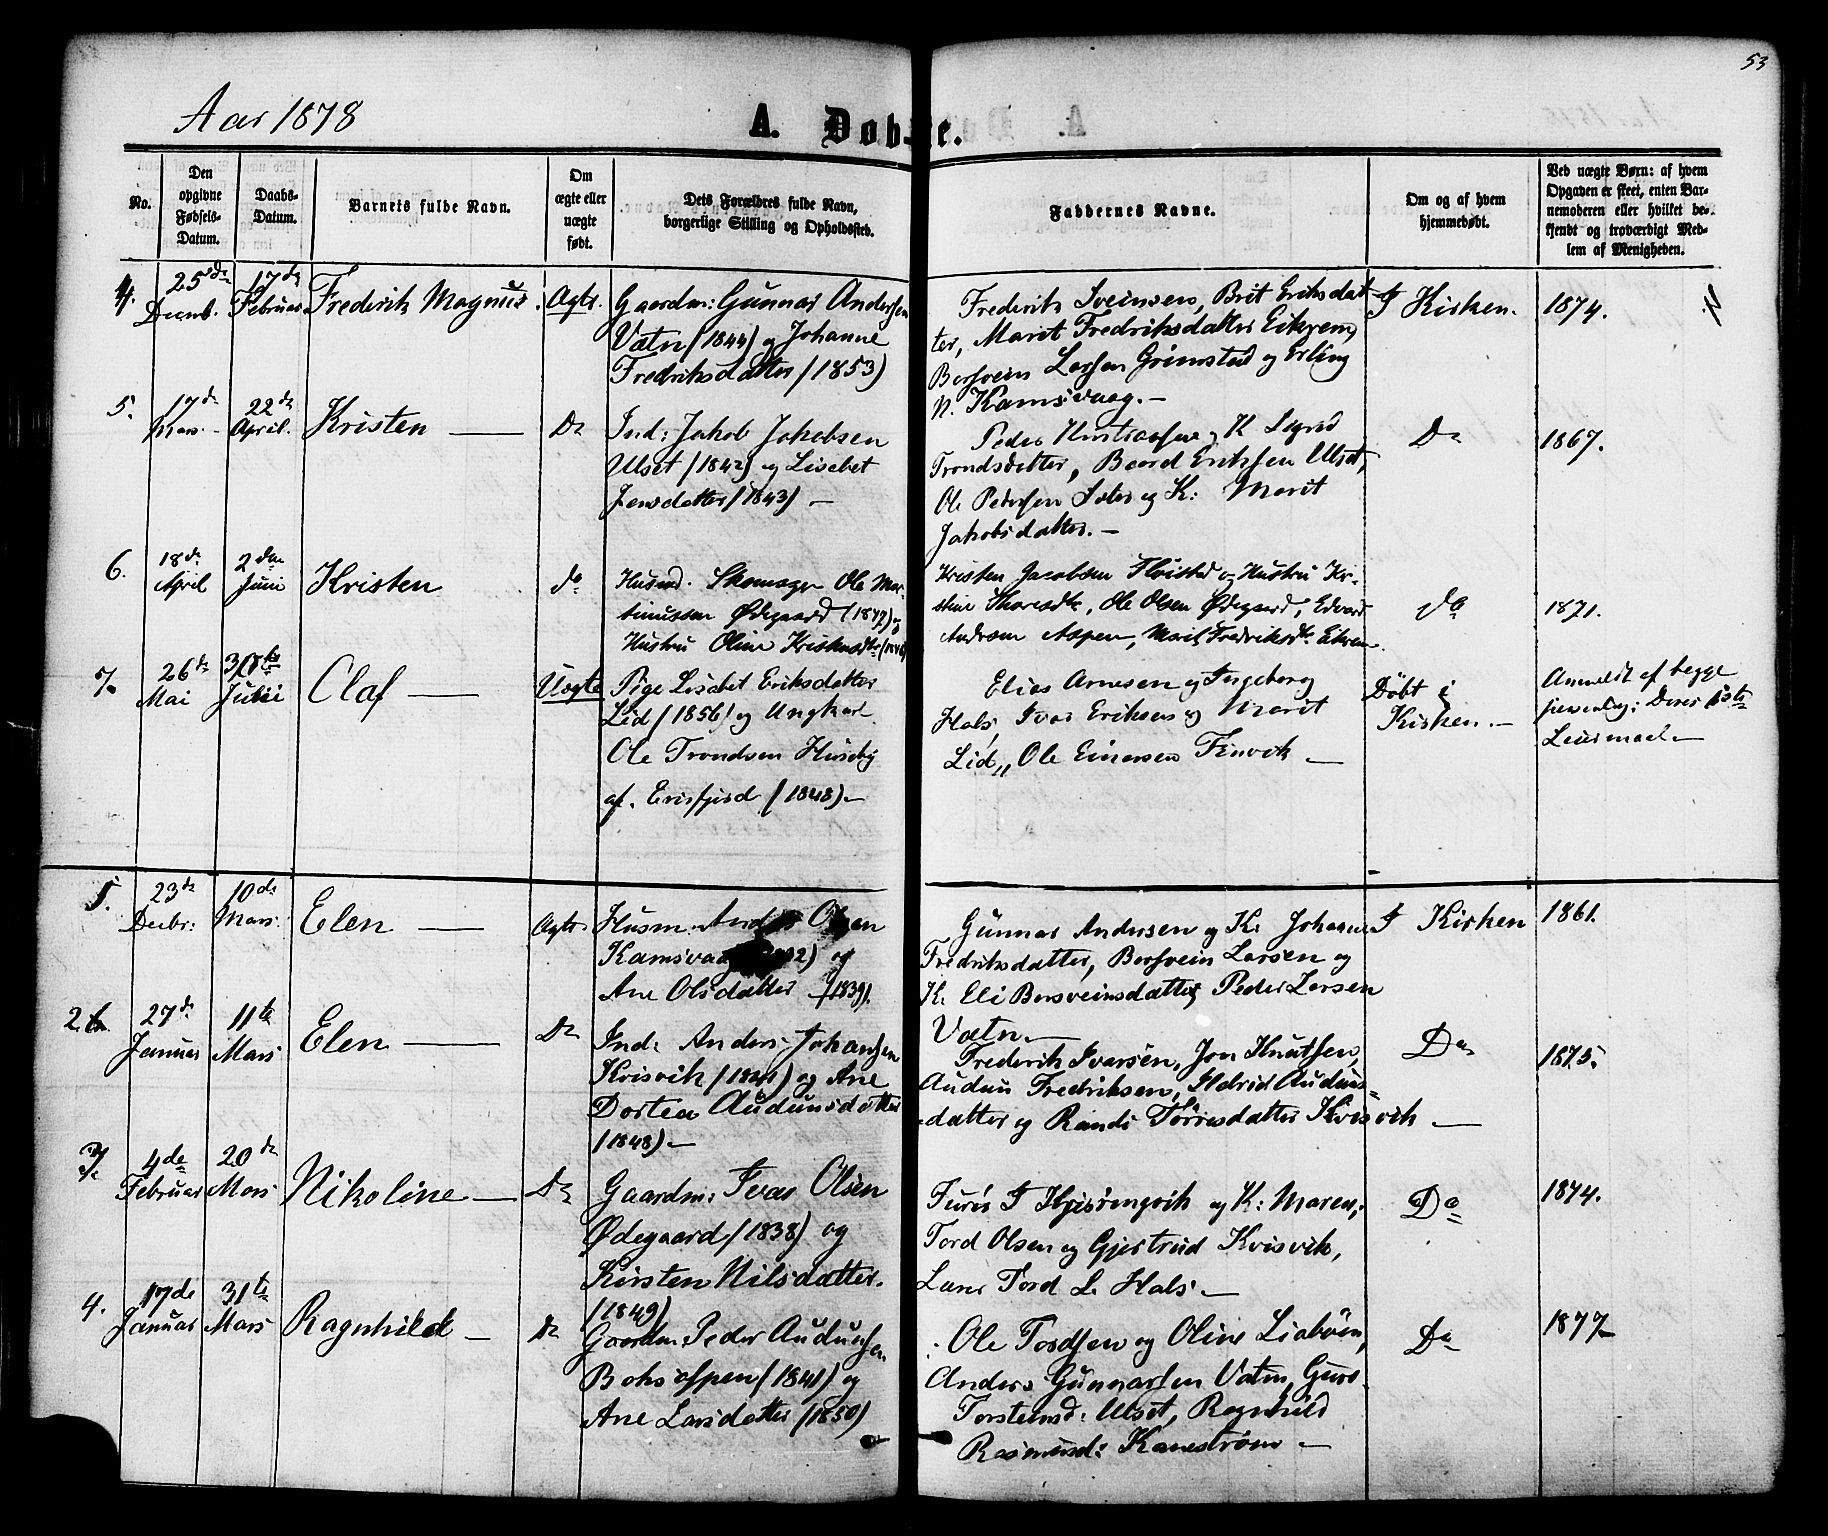 53
Aar 1878
A. Døbte.
No.
Den
opgivne
Fødsels-
Datum.
Daabs-
Datum.
Barnets fulde Navn.
Om
ægte eller
uægte
født.
Dets Forældres fulde Navn,
borgerlige Stilling og Opholdssted.
Faddernes Navne.
Om og af hvem
hjemmedøbt.
Ved uægte Børn: af hvem
Opgaven er skeet, enten Bar-
nemoderen eller hvilket be-
kjendt og troværdigt Med-
lem af Menigheden.
4.
25de
Decmb.
17de
Februar
Frederik Magnus.
Ægte.
Gaardm: Gunnar Andersen
Vatn (1844) og Johanne
Fredriksdatter (1853)
Frederik Sveinsen, Brit Eriksdat-
ter, Marit Fredriksdatter Eikrem,
Bersvein Larsen Grimstad og Erling
N. Kamsvaag.—
I Kirken.
1874.
4.
5.
17de
Mars.
22de
April.
Kristen —
Do
Ind: Jakob Jakobsen
Ulset (1842) og Lisabet
Jensdatter (1843) —
Peder og K. Sigrid
Trondsdatter, Baard Eriksen Ulset,
Ole Pedersen og K: Marit
Jakobsdatter.—
Do
1867.
6.
18de
April
2den
Juni
Kristen
do
Husmd. Skomager Ole Mar-
tinussen Ødegaard (1872) og
Hustru Oline
Kristen Jacobsen og Hustru Kri-
stine , Ole Olsen Ødegaard, Edvard
Andersen Aspen, Marit Fredriksdtr. Eikrem.
do
1871.
7.
26de
Mai
Juli
Olaf —
Uægte
Pige Lisabet Eriksdatter
Lid (1856) og Ungkarl
Ole Trondsen Huseby
af. Erisfjord (1848).—
Elias Arnesen og Ingeborg
Hals, Ivar Eriksen og Marit
Lid,, Ole Einersen —
Døbt i
Kirken.—
Anmeldt af begge
Deres 1ste
Leiermaal.—
1.
23de
Decbr:
10de
Mars.
Elen —
Ægte.
Husm. Anders Olsen
Kamsvaag og
Ane Olsdatter (1839).
Gunnar Andersen og K: Johanne
Fredriksdatter, Bersvein Larsen og
K. Eli Bersveinsdatter, Peder Larsen
Vatn.—
I Kirken
1861.
2.
27de
Januar
11te
Mars
Elen —
Do
Ind: Anders Johansen
Kvisvik og Ane
Dortea Audunsdatter
(1848).—
Frederik Ivarsen, Jon Knutsen,
Audun Fredriksen, Auduns-
datter og Randi Torresdatter Kvisvik —
Do
1875.
3.
4de
Februar
20de
Mars
Nikoline —
Do
Gaardm: Ivar Olsen
Ødegaard (1838) og
Kirsten Nilsdatter.
(1849)
og K: Maren,
Tord Olsen og Gjertrud Kvisvik,
Lars Tord L. Hals.—
Do
1874.
4.
17de
Januar
31te
Mars
Ragnhild —
Do
Gaardm. Peder Audunsen
Boksaspen (1841) og
Ane Larsdatter (1850)
Ole Tordsen og Oline Liabøen,
Anders Gunnarsen Vatn, Guro
Torsteinsd: Ulset, Ragnhild
Rasmusd: Kanestrøm —
Do
1877—